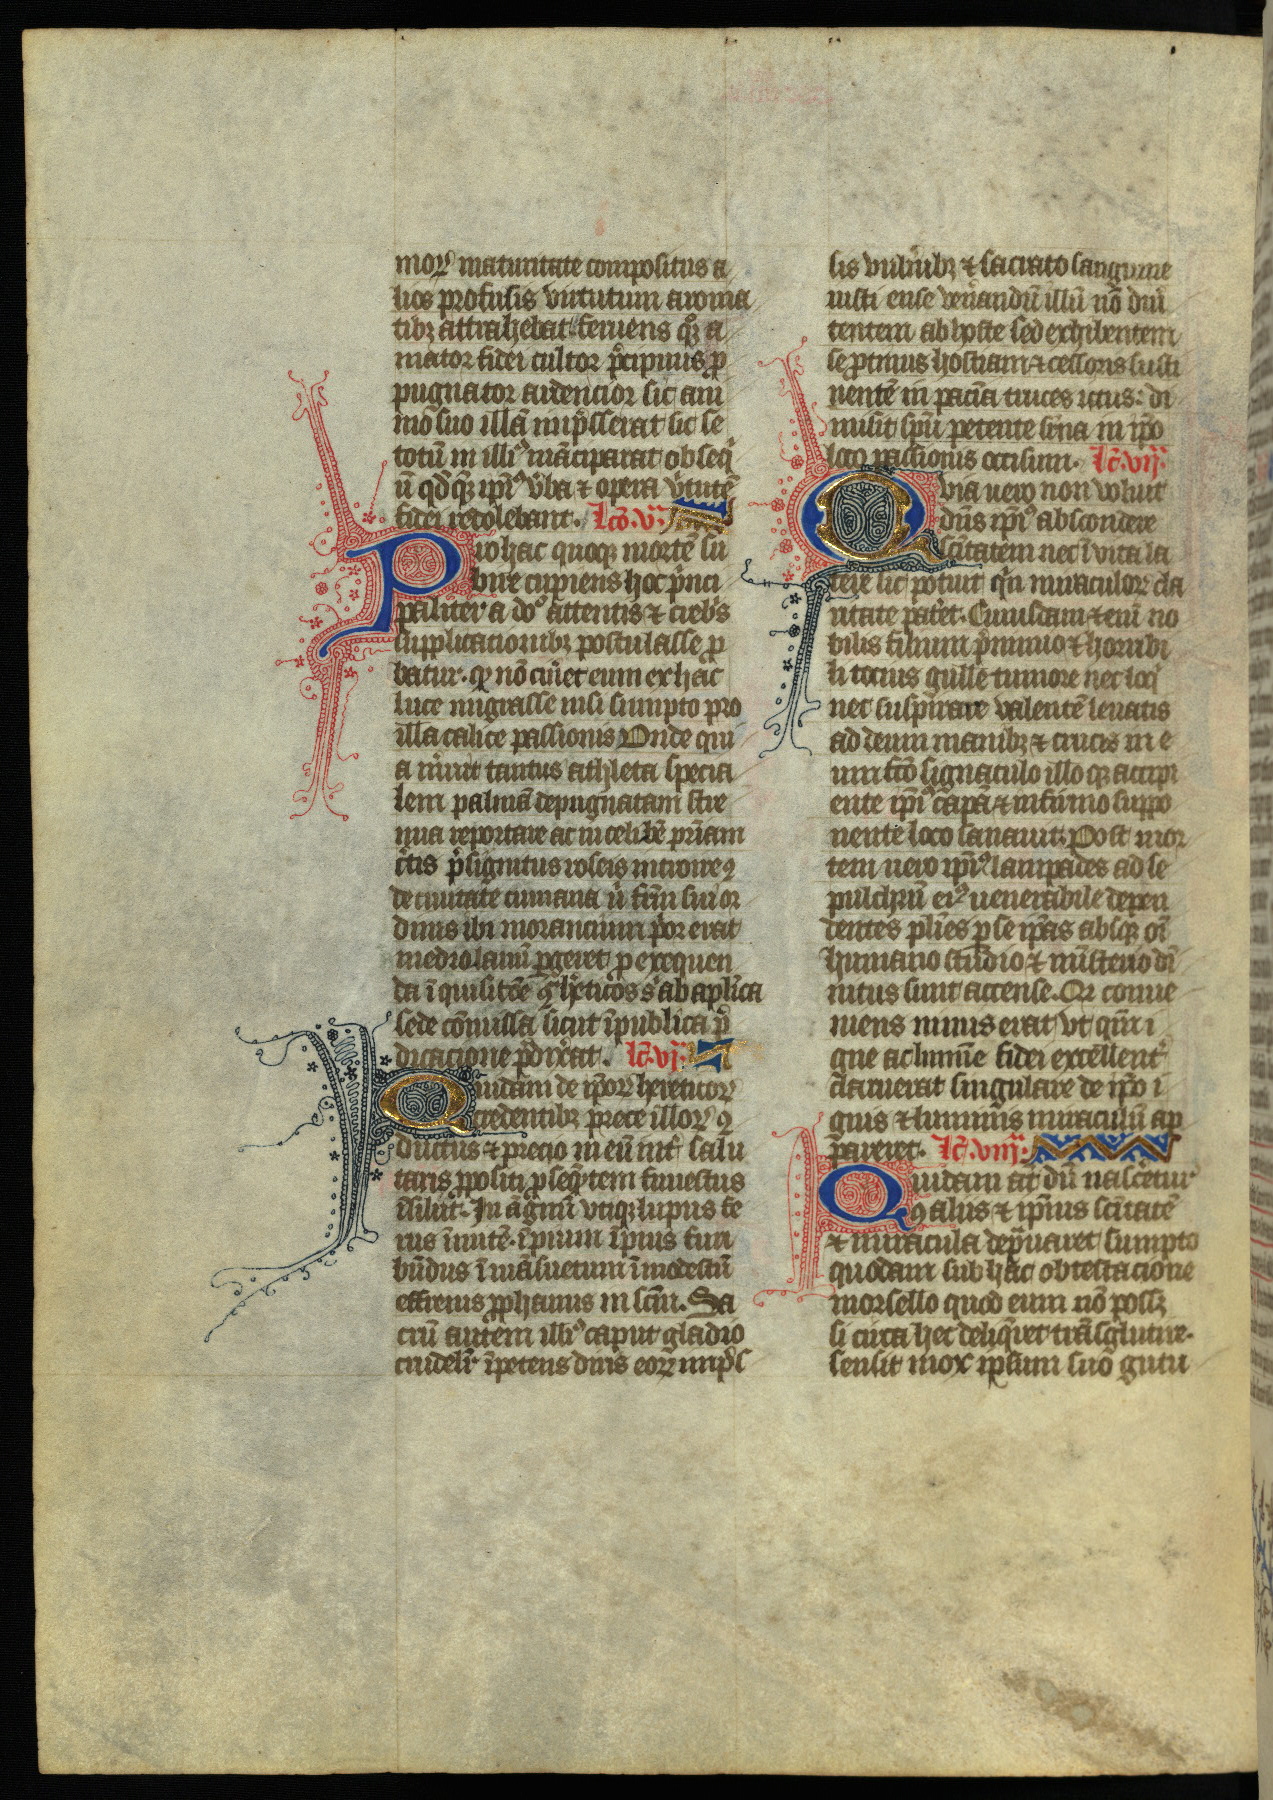 morꝝ maturitate compositus a
lios profusis virtutum aroma
tibꝫ attrahebat. feruens qꝫ a
mator fidei cultor p̄cipuus ꝓ
pugnator ardencior sic ani
mo suo illā inp̄sserat sic se
totū in illiꝰ māciparat obseq̄
ū qd̛ qꝫ ip̄iꝰ v̄ba ⁊ opera v̄tutē
fidei redolebant. Lc̄o. v.
Pro hac quoqꝫ mortē su
bire cupiens hoc p̄nci
paliter a do͛ attentis ⁊ creb̛s
supplicationibꝫ postulasse ꝓ
batur. ꝙ nō sin̄et eum ex hac
luce migrasse nisi sumpto pro
illa calice passionis Vnde qui
a n̄uit tantus athleta specia
lem palmā de pugna tam stre
nua reportare ac in celibē p̄riam
c̄tis p̄signitus roseis introire ꝯ
de ciuitate cumana u̇ fr̄m sui or
dinis ibi morancium p̄or erat
mediolanū ꝑgeret ꝓ exequen
da īquisitōe ꝯ̄ hetic̄os s̄ ab aplica
sede cōmissa sicut īpublica p̄
dicacione p̄dix̄at. Lc̄. vj.
Quidam de ip̄orꝝ hereticorꝝ
credentibꝫ prece illorꝝ ꝯ
ductus ⁊ precio in eū iter salu
taris ꝓpositi ꝓseq̄ntem funestus
īsiliit. In agnū vtiqꝫ lupus fe
rus īmitē. īpium īpius furi
būdus ī māsuetum īmodestū
effrenis ꝓphanus in sc̄m. Sa
crū autem illiꝰ caput gladio
crudelr̄ īpetens diris eorꝝ inp̄s
sis vuln̄ibꝫ ⁊ sacrato sanguine
iusti ense ven̄andū illū nō diū
tentem ab hoste sed exhibentem
se ꝓtinus hostiam ⁊ cessoris susti
nentē in pacīa truces ictus: di
misit spū petente sꝑna in ip̄o
loco passionis occisum. Lc̄. vij.
Quia uero non voluit
dn̄s ip̄iꝰ abscondere
sc̄itatem nec ī vita la
tere sic potuit qn̄ miraculorꝝ cla
ritate patet. Cuiusdam ⁊enī no
bilis filium p̄nimio ⁊ horribi
li tocius gulle tumore nec loq̄
nec suspirare valentē leuatis
ad deum manibꝫ ⁊ crucis in e
um fc̄o signaculo illo qꝫ accipi
ente ip̄iꝰ capā ⁊ infirmo suppo
nente loco sanauit. Post mor
tem uero ip̄iꝰ lampades ad se
pulchrū eiꝰ uenerabile depen
dentes pl̄ies ꝑ se ip̄as absqꝫ oi̅
humano studio ⁊ mīsterio di
uitus sunt accense. Qr conue
niens nimis erat vt qm̄ i
gne ac lumīe fidei excellent̛
claruerat singulare de ip̄o i
gnis ⁊ luminis miraculū ap
pareret. Lc̄. viij.
Quidam at dū nasc̄etur
ꝯ alius ⁊ ip̄ius sc̄itatē
⁊ miracula dep̄uaret sumpto
quodam sub hac obtestacione
morsello quod eum nō possꝫ
si circa hec deliq̄ret trāsglutire.
sensit mox ipsum suo gutu